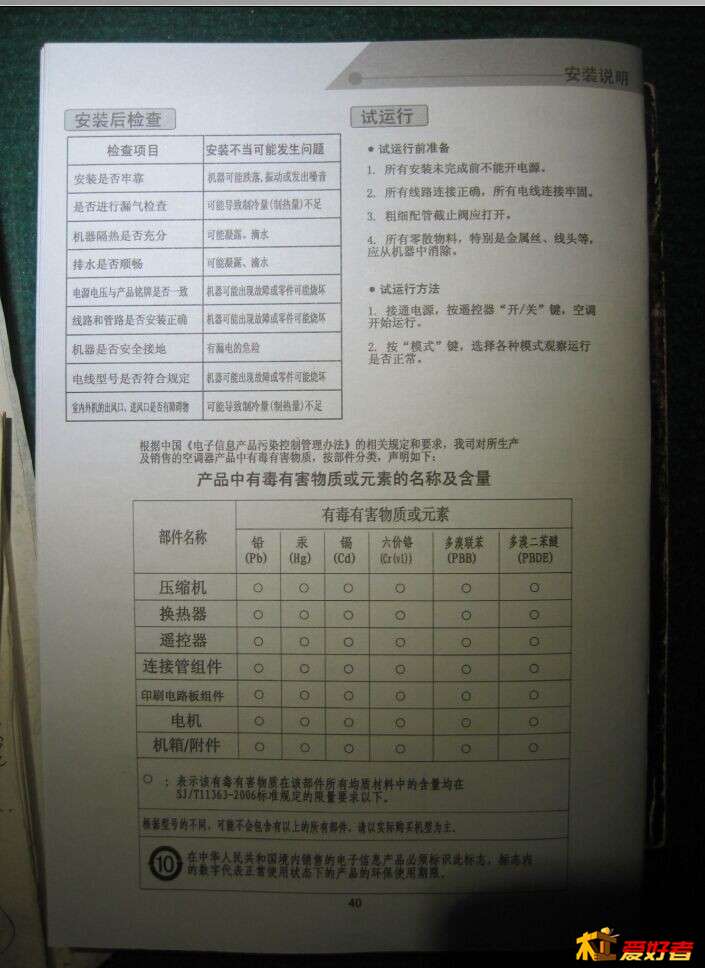 安装说明
安装后检查
检查项目 安装不当可能发生问题
安装是否牢靠 机器可能跌落,振动或发出噪音
是否进行漏气检查 可能导致制冷量(制热量)不足
机器隔热是否充分 可能凝露、滴水
排水是否顺畅 可能凝露、滴水
电源电压与产品铭牌是否一致 机器可能出现故障或零件可能烧坏
线路和管路是否安装正确 机器可能出现故障或零件可能烧坏
机器是否安全接地 有漏电的危险
电线型号是否符合规定 机器可能出现故障或零件可能烧坏
室内外机的出风口、送风口是否有障碍物 可能导致制冷量(制热量)不足
试运行
● 试运行前准备
1. 所有安装未完成前不能开电源。
2. 所有线路连接正确，所有电线连接牢固。
3. 粗细配管截止阀应打开。
4. 所有零散物料，特别是金属丝、线头等，
应从机器中消除。
● 试运行方法
1. 接通电源，按遥控器“开/关”键，空调
开始运行。
2. 按“模式”键，选择各种模式观察运行
是否正常。
根据中国《电子信息产品污染控制管理办法》的相关规定和要求，我司对所生产
及销售的空调器产品中有毒有害物质，按部件分类，声明如下：
产品中有毒有害物质或元素的名称及含量
部件名称 有毒有害物质或元素
铅 汞 镉 六价铬 多溴联苯 多溴二苯醚
(Pb) (Hg) (Cd) (Cr(vl)) (PBB) (PBDE)
压缩机 ○ ○ ○ ○ ○ ○
换热器 ○ ○ ○ ○ ○ ○
遥控器 ○ ○ ○ ○ ○ ○
连接管组件 ○ ○ ○ ○ ○ ○
印刷电路板组件 ○ ○ ○ ○ ○ ○
电机 ○ ○ ○ ○ ○ ○
机箱/附件 ○ ○ ○ ○ ○ ○
○ ：表示该有毒有害物质在该部件所有均质材料中的含量均在
SJ/T11363-2006标准规定的限量要求以下。
根据型号的不同，可能不会包含有以上的所有部件，请以实际购买机型为主。
10 在中华人民共和国境内销售的电子信息产品必须标识此标志，标志内
的数字代表正常使用状态下的产品的环保使用期限。
40
爱好者